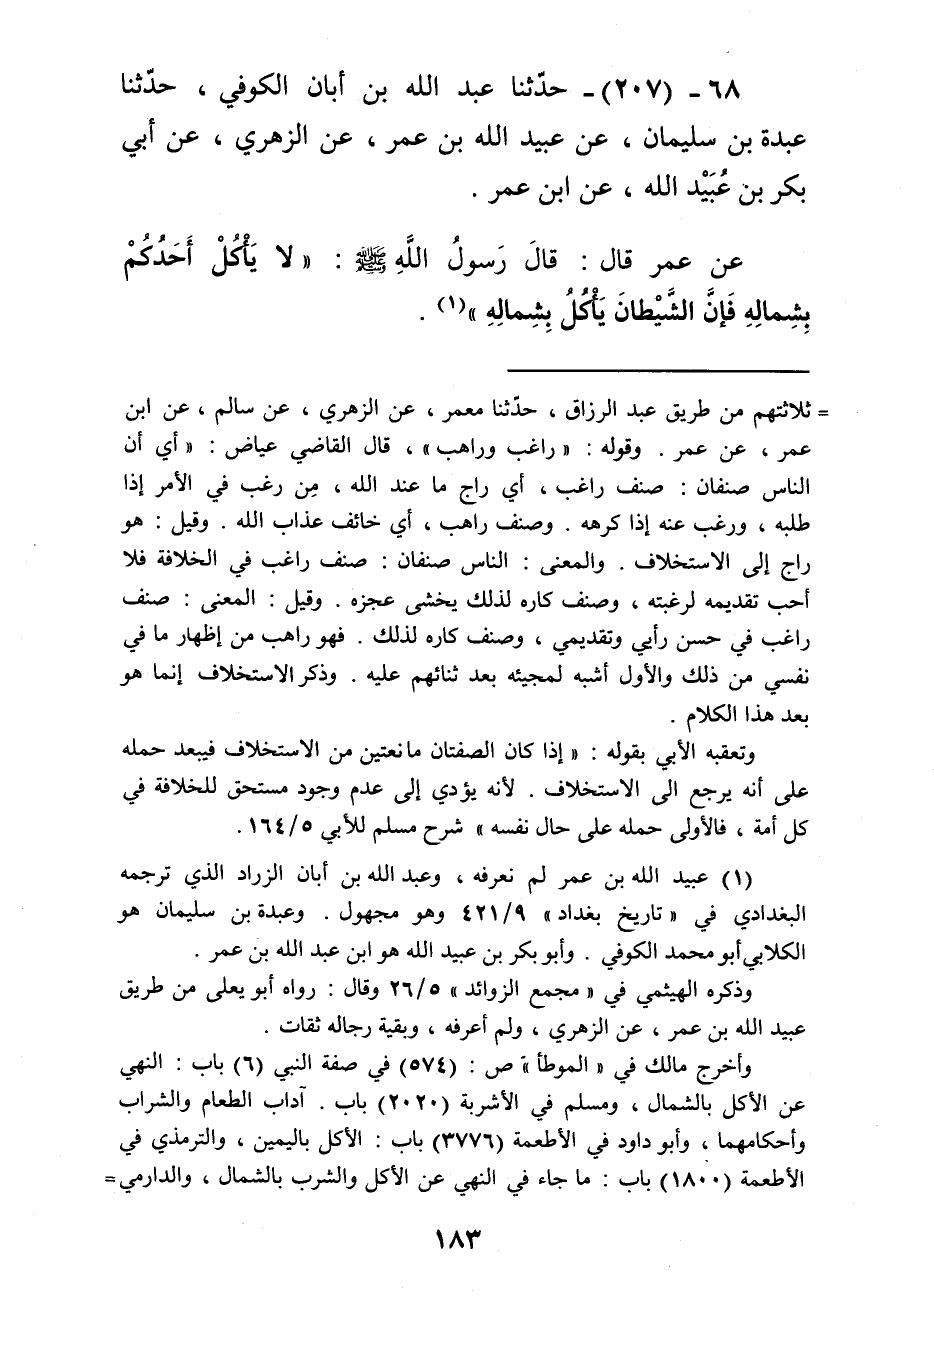 ٦٨ ـ (٢٠٧)ـ حدّثنا عبد الله بن أبان الكوفي ، حدّثنا
عبدة بن سليمان ، عن عبيد الله بن عمر ، عن الزهري ، عن أبي
بكر بن عُبَيْد الله ، عن ابن عمر .
عن عمر قال : قالَ رَسولُ اللَّهِ ﷺ : « لا يَأْكُلْ أَحَدُكُمْ
بِشِمالِهِ فَإِنَّ الشَّيْطانَ يَأْكُلُ بِشِمالِهِ »(١) .
= ثلاثتهم من طريق عبد الرزاق ، حدّثنا معمر ، عن الزهري ، عن سالم ، عن ابن
عمر ، عن عمر . وقوله : « راغب وراهب » ، قال القاضي عياض : « أي أن
الناس صنفان : صنف راغب ، أي راج ما عند الله ، مِن رغب في الأمر إذا
طلبه ، ورغب عنه إذا كرهه . وصنف راهب ، أي خائف عذاب الله . وقيل : هو
راج إلى الاستخلاف . والمعنى : الناس صنفان : صنف راغب في الخلافة فلا
أحب تقديمه لرغبته ، وصنف كاره لذلك يخشى عجزه . وقيل : المعنى : صنف
راغب في حسن رأيي وتقديمي ، وصنف كاره لذلك . فهو راهب من إظهار ما في
نفسي من ذلك والأول أشبه لمجيئه بعد ثنائهم عليه . وذكر الاستخلاف إنما هو
بعد هذا الكلام .
وتعقبه الأبي بقوله : « إذا كان الصفتان مانعتين من الاستخلاف فيبعد حمله
على أنه يرجع الى الاستخلاف . لأنه يؤدي إلى عدم وجود مستحق للخلافة في
كل أمة ، فالأولى حمله على حال نفسه » شرح مسلم للأبي ١٦٤/٥ .
(١) عبيد الله بن عمر لم نعرفه ، وعبد الله بن أبان الزراد الذي ترجمه
البغدادي في « تاريخ بغداد » ٤٢١/٩ وهو مجهول . وعبدة بن سليمان هو
الكلابي أبو محمد الكوفي . وأبو بكر بن عبيد الله هو ابن عبد الله بن عمر .
وذكره الهيثمي في « مجمع الزوائد » ٢٦/٥ وقال : رواه أبو يعلى من طريق
عبيد الله بن عمر ، عن الزهري ، ولم أعرفه ، وبقية رجاله ثقات .
وأخرج مالك في « الموطأ » ص : (٥٧٤) في صفة النبي (٦) باب : النهي
عن الأكل بالشمال ، ومسلم في الأشربة (٢٠٢٠) باب . آداب الطعام والشراب
وأحكامهما ، وأبو داود في الأطعمة (٣٧٧٦) باب : الأكل باليمين ، والترمذي في
الأطعمة (١٨٠٠) باب : ما جاء في النهي عن الأكل والشرب بالشمال ، والدارمي =
١٨٣